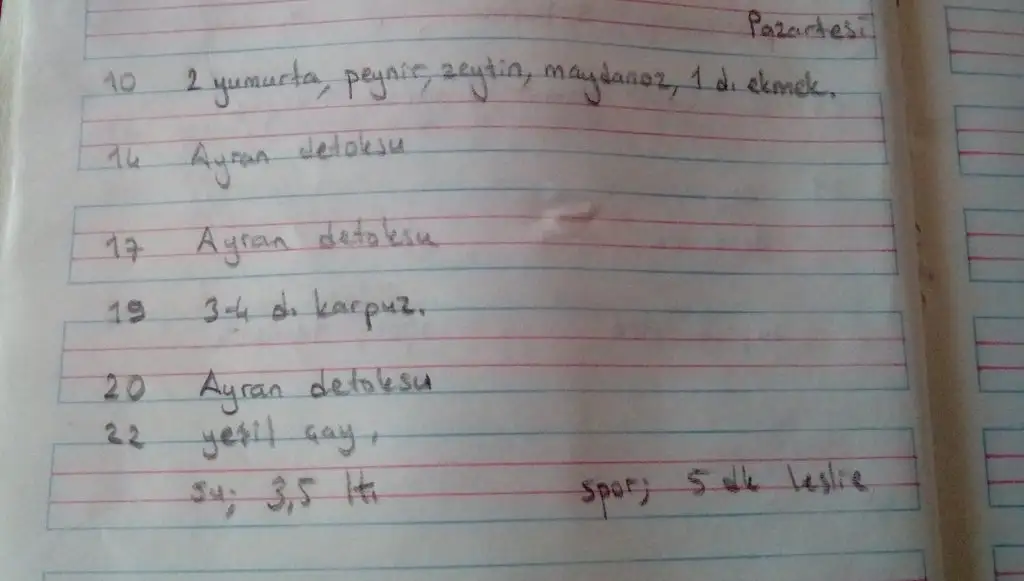 Pazartesi
10 2 yumurta, peynir, zeytin, maydanoz, 1 d. ekmek.
14 Ayran detoksu
17 Ayran detoksu
19 3-4 d. karpuz.
20 Ayran detoksu
22 yeşil çay,
su; 3,5 lt. spor; 5 dk leslie